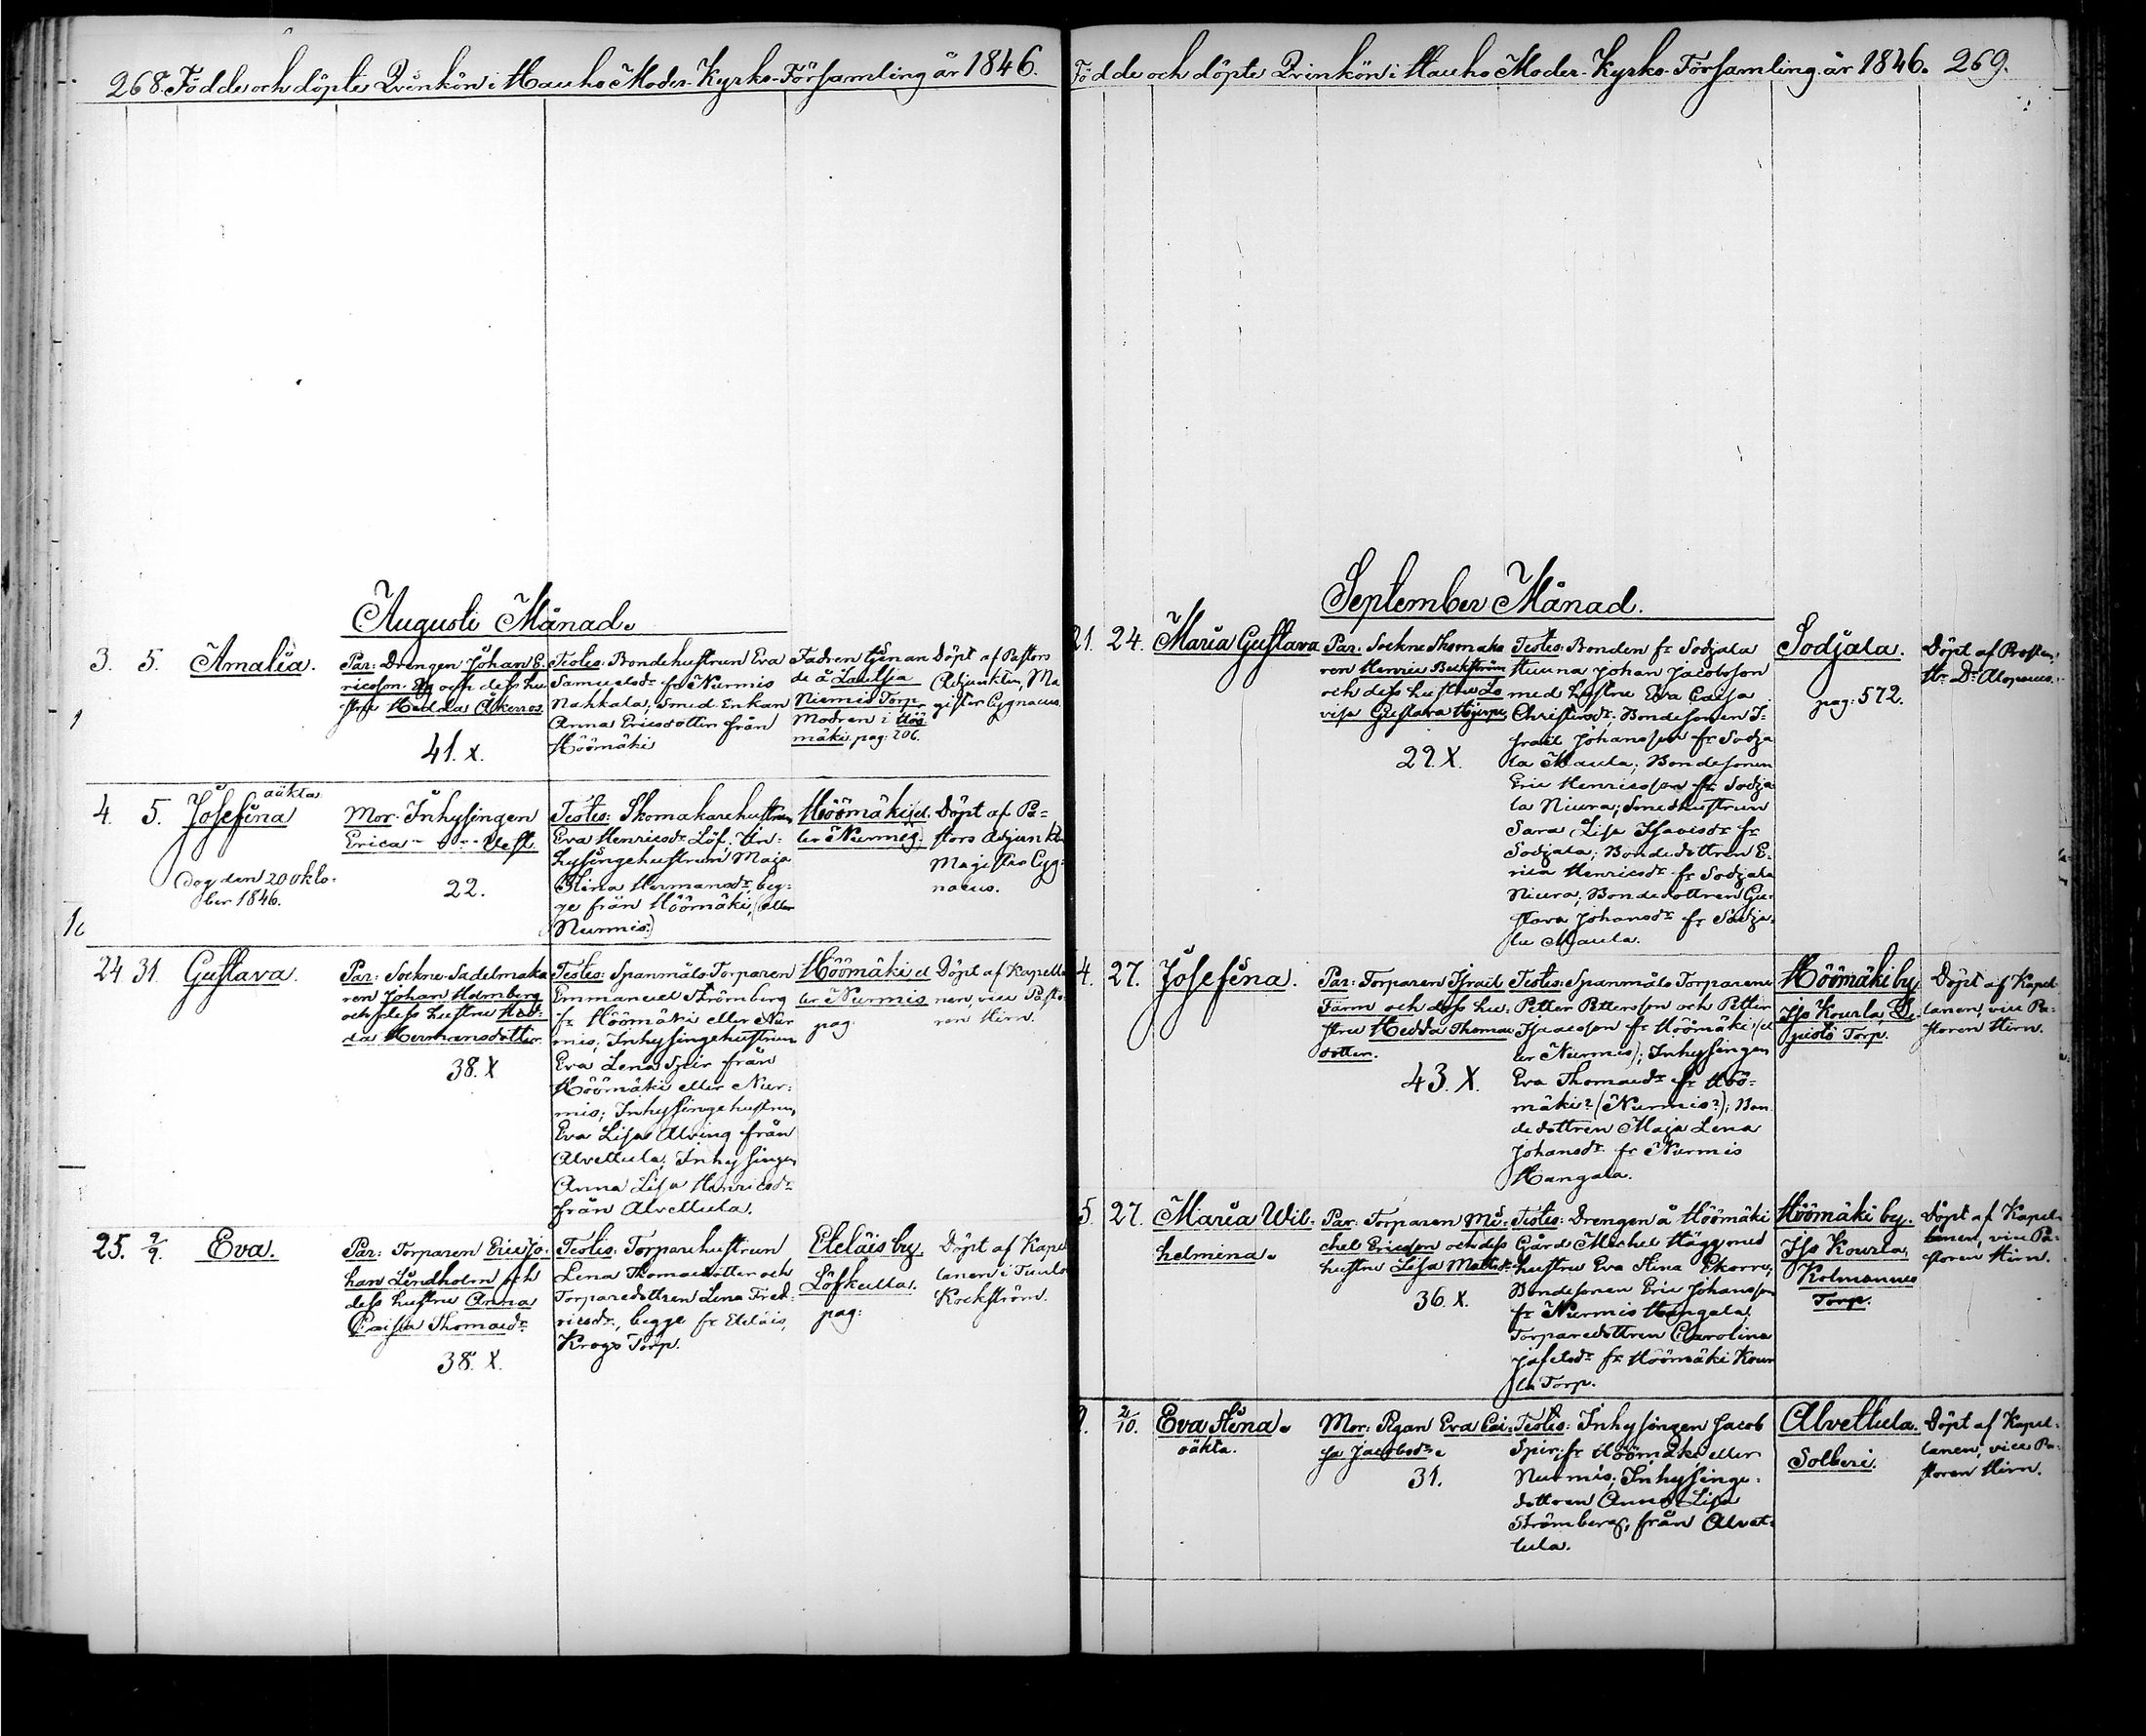 268. Födde och döpte Qvinkön i Hauho Moder-Kyrko-Församling år 1846.
Augusti Månad.
3. 5. Amalia.
Par: Drengen Johan E-
ricsson och dess hu-
stru Hedda Åkerros.
41. X.
Testes: Bondehustrun Eva
Samuelsdr fr Nurmis
Nahkala, smed. Enkan
Anna Ericsdotter från
Höömäki
Fadren tjenan
de å Lautsia
Niemis Torp
Modren i Höö
mäki. pag: 206.
Döpt af Pastors
Adjunkten, Ma
gister Cygnaeus.
1
4. 5. Josefina
oäkta
Dog den 20 okto-
ber 1846.
Mor. Inhysingen
Erica
22.
Testes: Skomakarehustrun
Eva Henricsdr Löf, In-
hysingehustrun Maja
Stina Hermansdr, beg-
ge från Höömäki, (eller
Nurmis.)
Höömäki, el.
ler Nurmis.
Döpt af Pa-
stors Adjunkt
Magister Cyg-
naeus.
24 31. Gustava.
Par: Sockne-Sadelmaka
ren Johan Holmberg
och dess hustru Hed-
da Hermansdotter.
38. X
Testes: Spanmåls-Torparen
Emmanuel Strömberg
fr Höömäki eller Nur
mis; Inhysingehustrun
Eva Lena Spir från
Höömäki eller Nur-
mis; Inhysingehustrun,
Eva Lisa Alving från
Alvettula, Inhysingen
Anna Lisa Henricsdr
från Alvettula.
Höömäki el
ler Nurmis
pag:
Döpt af Kapella
nen, vice Pasto-
ren Hirn.
25. 2/9. Eva.
Par: Torparen Eric Jo-
han Lindholm och
dess hustru Anna
Caisa Thomasdr
38. X.
Testes: Torparehustrun
Lena Thomasdotter och
Torparedottren Lena Fred-
ricsdr, begge fr Eteläis,
Krogs Torp.
Eteläis by.
Löfkulla.
pag:
Döpt af Kapel
lanen i Tuulo
Kockström.
Födde och döpte Qvinkön i Hauho Moder-Kyrko-Församling år 1846. 269.
September Månad.
21. 24. Maria Gustava
Par: Sockne Skomaka
ren Henric Beckström
och dess hustru Lo
visa Gustava Hjerpe.
22. X.
Testes: Bonden fr Sodjala
Huuna Johan Jacobsson
med hustru Eva Caisa
Christersdr Bondesonen I-
srael Johansson fr Sodja
la Maula; Bondesonen
Eric Henricsson fr Sodja
la Niura; Smedhustrun
Sara Lisa Isacsdr fr
Sodjala; Bondedottren E-
rica Henricsdr fr Sodjala
Niura; Bondedottren Gu-
stava Johansdr fr Sodja-
la Maula.
Sodjala.
pag: 572.
Döpt af Prosten,
Hr Dr Alopaeus.
4. 27. Josefina.
Par: Torparen Israel
Färm och dess hu-
stru Hedda Thomas
dotter.
43. X.
Testes: Spanmåls Torparene
Petter Pettersson och Petter
Isaacsson fr Höömäki (el
ler Nurmis); Inhysingen
Eva Thomasdr fr Höö-
mäki? (Nurmis?); Bon
dedottren Maja Lena
Johansdr fr Nurmis
Hangala.
Höömäki by
Iso Kourla,
Torp.
Döpt af Kapel
lanen, vice Pa-
storen Hirn.
5. 27. Maria Wil-
helmina.
Par: Torparen Mi-
chel Ericsson och dess
hustru Lisa Matsdr
36. X.
Testes: Drengen å Höömäki
Gård Michel Hägg med
hustru Eva Stina Ekorre,
Bondesonen Eric Johansson
fr Nurmis Hangala,
Torparedottren Carolina
Josefsdr fr Höömäki Kour
la Torp.
Höömäki by.
Iso Kourla,
Kolmannus
Torp.
Döpt af Kapel-
lanen, vice Pa-
storen Hirn.
2/10. Eva Stina.
oäkta.
Mor: Pigan Eva Cai-
sa Jacobsdr.
31.
Testes: Inhysingen Jacob
Spir, fr Höömäki eller
Nurmis; Inhysinge-
dottren Anna Lisa
Strömberg, från Alvet-
tula.
Alvettula.
Solberi.
Döpt af Kapel-
lanen, vice Pa-
storen Hirn.